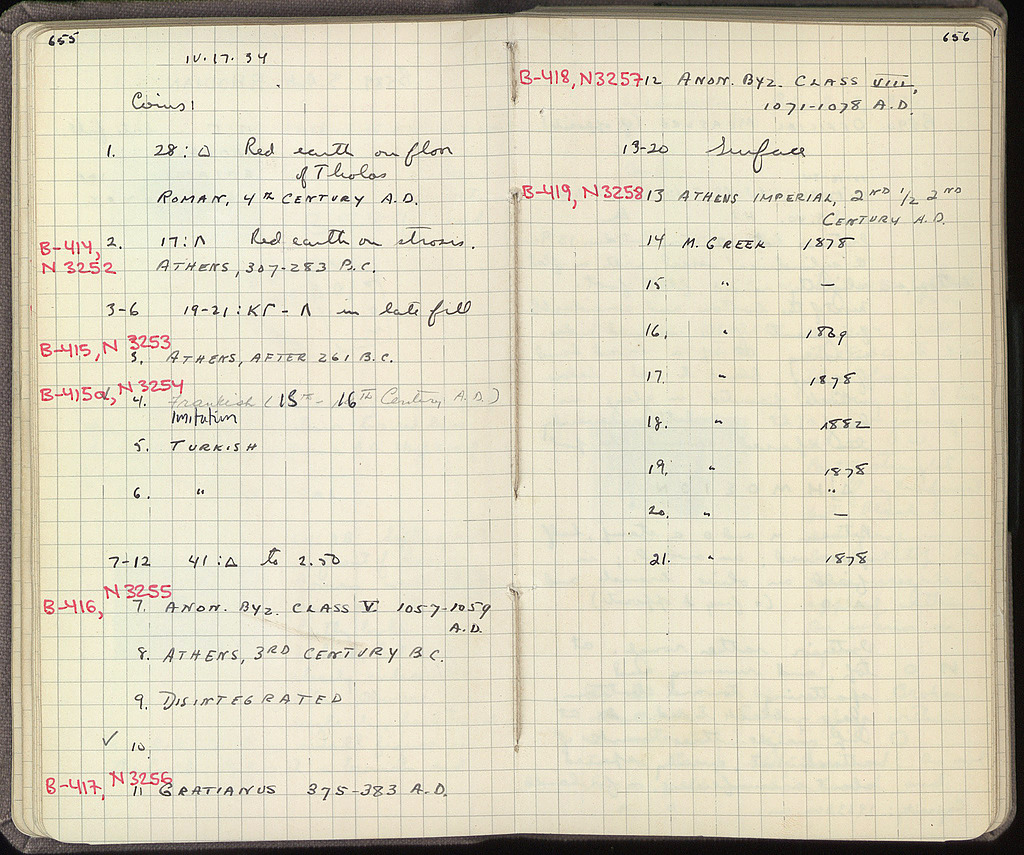 655
IV.17.34
Coins:
1. 28:Δ Red earth on floor
of Tholos
ROMAN, 4TH CENTURY A.D.
B-414, 2. 17:Λ Red earth on stroses.
N 3252 ATHENS, 307-283 B.C.
3-6 19-21:ΚΓ-Λ in late fill
B-415, N 3253
3. ATHENS, AFTER 261 B.C.
B-415α, N 3254
4. Frankish (15TH - 16TH Century A.D.)
Imitation
5. TURKISH
6. "
7-12 41:Δ to 2.50
B-416, N 3255
7. ANON. BYZ. CLASS V 1057-1059
A.D.
8. ATHENS, 3RD CENTURY B.C.
9. DISINTEGRATED
✓ 10.
B-417, N 3256
11 GRATIANUS 375-383 A.D.
656
B-418, N3257 12 ANON. BYZ. CLASS VIII,
1071-1078 A.D.
13-20 Surface
B-419, N3258 13 ATHENS IMPERIAL, 2ND 1/2 2ND
CENTURY A.D.
14 M. GREEK 1878
15 " —
16. " 1869
17. " 1878
18. " 1882
19. " 1878
"
20. " —
21. " 1878